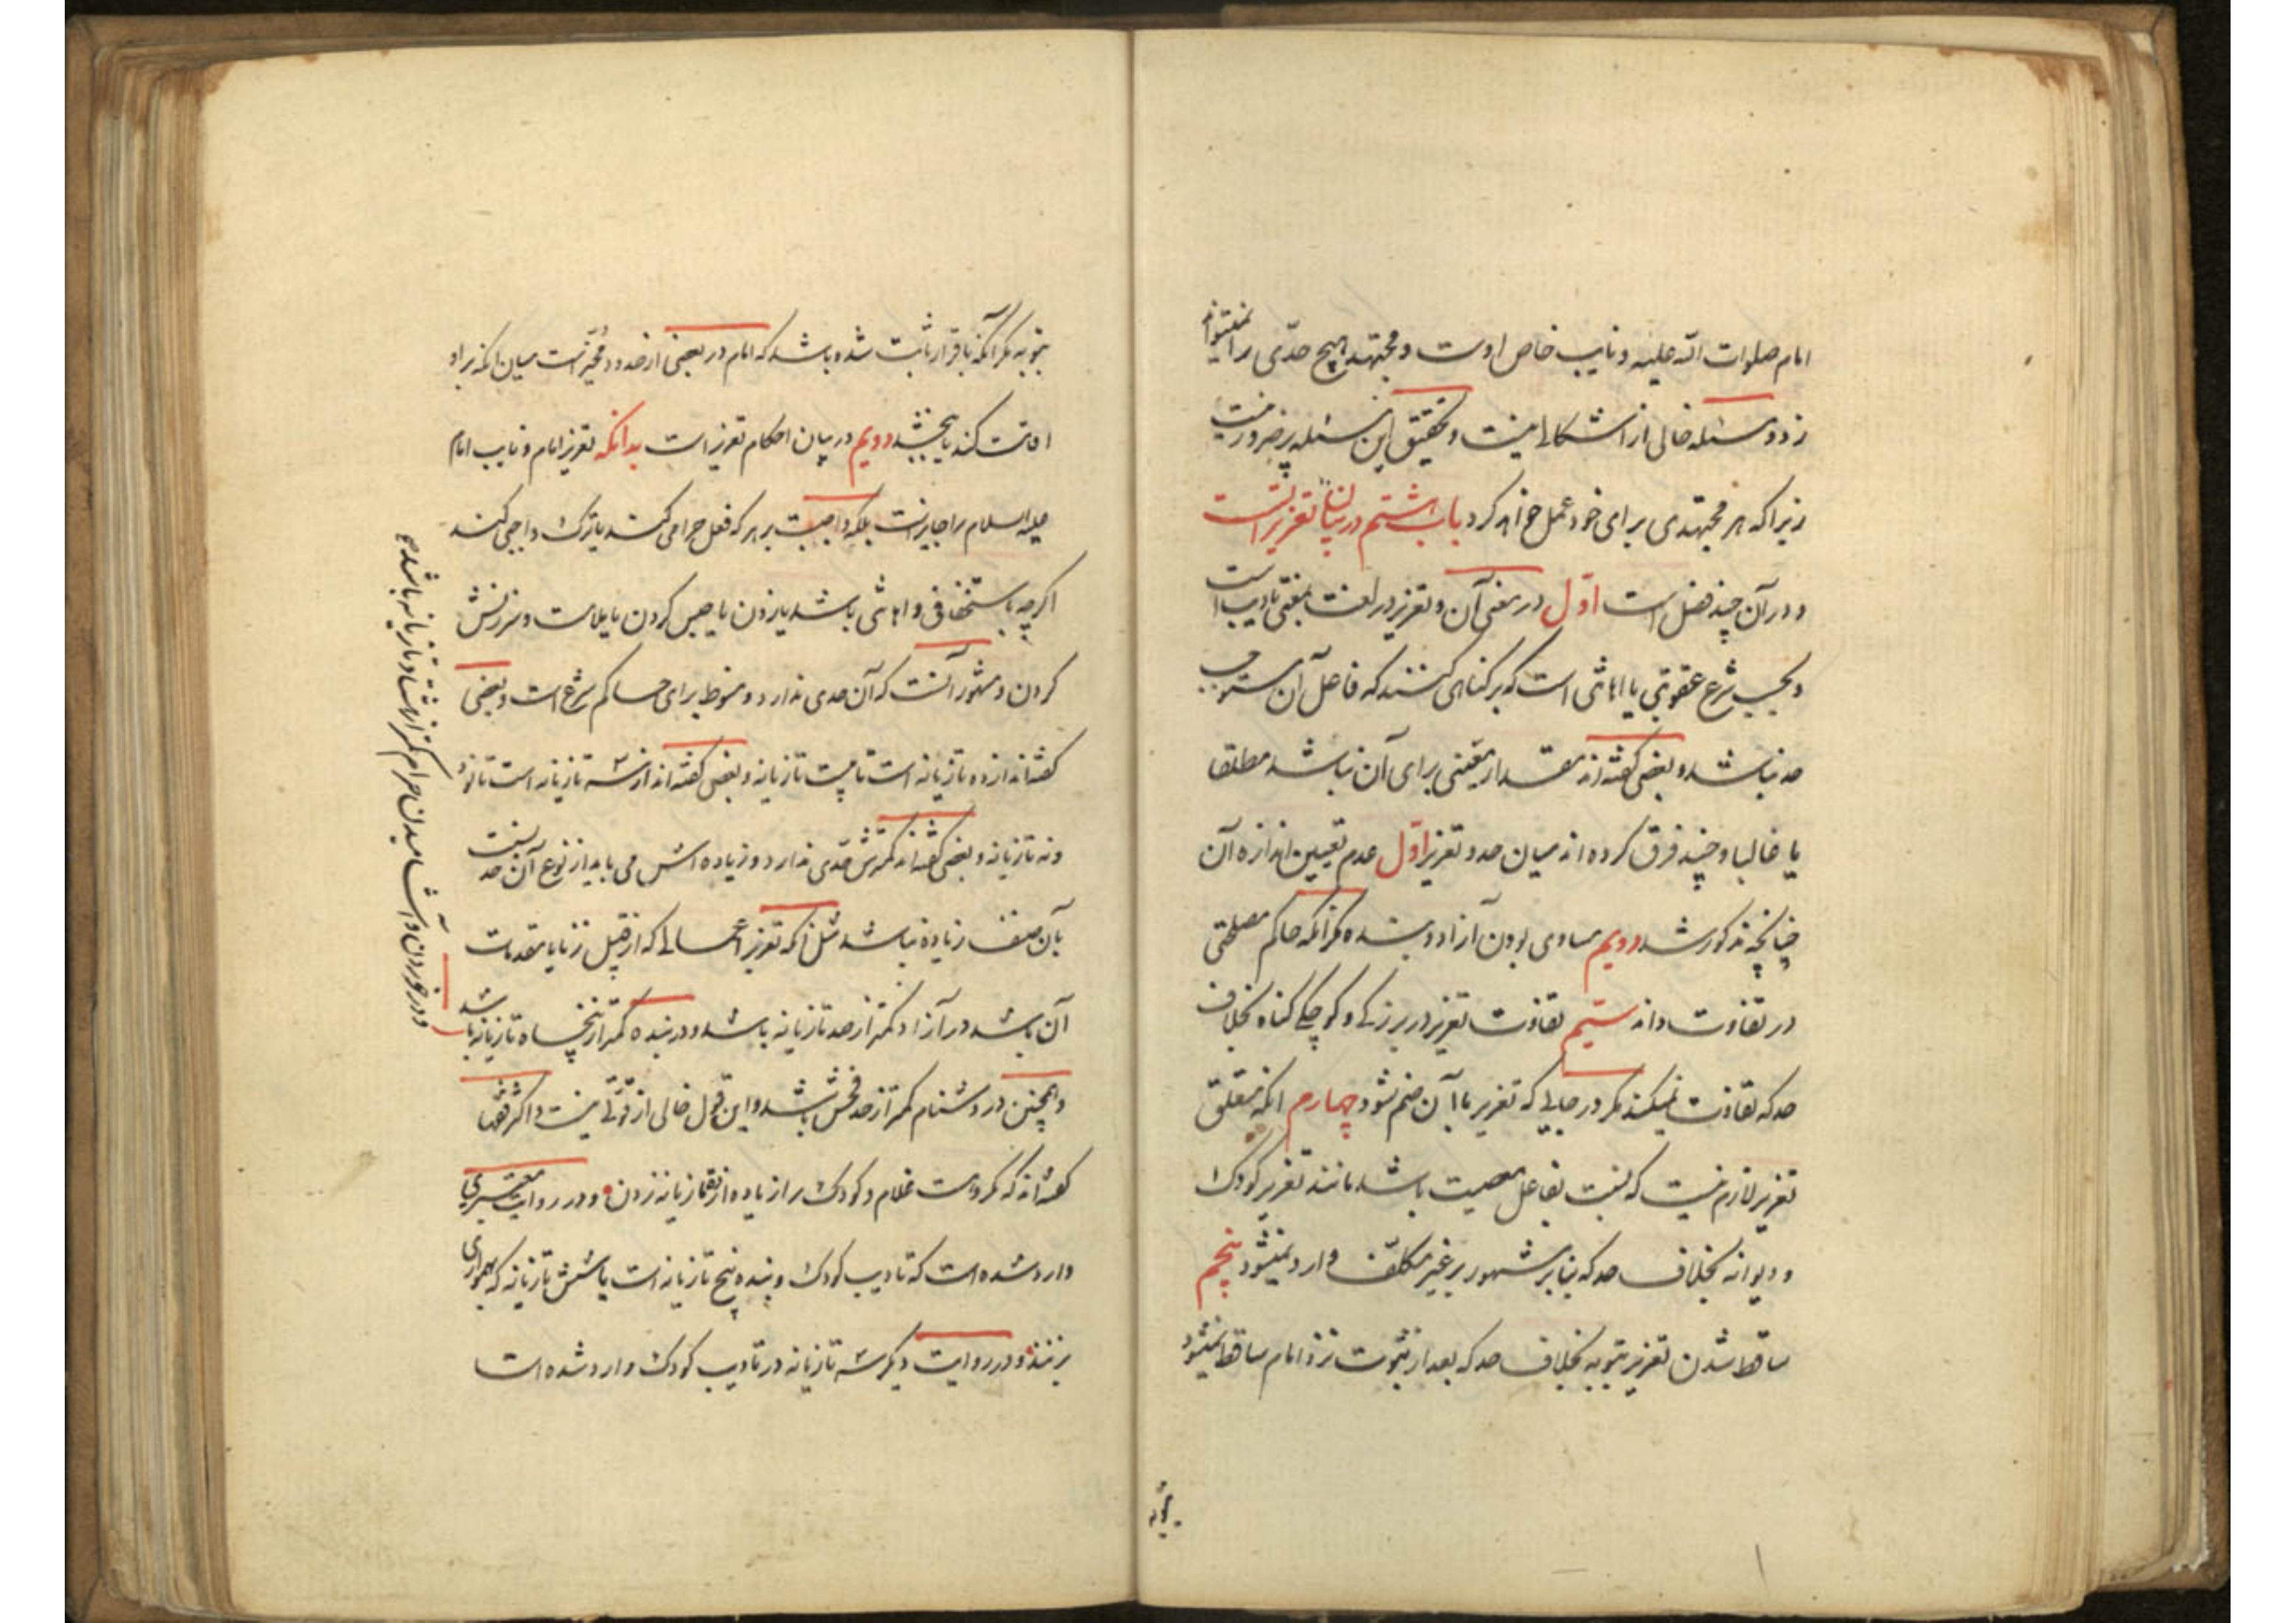 امام صلوات الله علیه و نایب خاص اوست و مجتهد هیچ حدّی را نمیتواند
زد و مسئله خالی از اشکالی نیست و تحقیق این مسئله پر ضرور نیست
زیرا که هر مجتهدی برای خود عمل خواهد کرد باب هشتم در بیان تعزیراتست
و در آن چند فصل است اوّل در معنی آن و تعزیر در لغت بمعنی تادیب است
و بحسب شرع عقوبتی یا اهانتی است که بر گناهی کنند که فاعل آن مستوجب
حد نباشد و بعضی گفته اند مقدار معیّنی برای آن نباشد مطلقا
یا غالبا و چند فرق کرده اند میان حد و تعزیر اوّل عدم تعیین اندازه آن
چنانچه مذکور شد دویم مساوی بودن آزاد و بنده مگر آنکه حاکم مصلحتی
در تفاوت داند سیّم تفاوت تعزیر در بزرگی و کوچکی گناه بخلاف
حد که تفاوت نمیکند مگر در جایی که تعزیر باآن ضم شود چهارم آنکه متعلق
تعزیر لازم نیست که نسبت بفاعل معصیت باشد مانند تعزیر کودک
و دیوانه بخلاف حد که بنابر مشهور بر غیر مکلّف وارد نمیشود پنجم
ساقط شدن تعزیر بتوبه بخلاف حد که بعد از ثبوت نزد امام ساقط نمیشود
بتوبه
بتوبه مگر آنکه باقرار ثابت شده باشد که امام در بعضی از حدود مخیّر است میان آنکه بر او
اقامت کند یا ببخشد دویم در بیان احکام تعزیر است بدانکه تعزیر امام و نایب امام
علیه السلام را جایز است بلکه واجبست بر هر که فعل حرامی کند یا ترک واجبی کند
اگرچه باستخفافی و اهانتی باشد یا زدن یا حبس کردن یا ملامت و سرزنش
کردن و مشهور آنست که آن حدی ندارد و منوط برای حاکم شرع است و بعضی
گفته اند از ده تازیانه است تا بیست تازیانه و بعضی گفته اند از سه تازیانه است تا نود
و نه تازیانه و بعضی گفته اند کمترش حدّی ندارد و زیاده اش می باید از نوع آن حد نسبت
بآن صنف زیاده نباشد مثل آنکه تعزیر اعمالی که از قبیل زنا یا مقدمات
آن باشد در آزاد کمتر از صد تازیانه باشد و در بنده کمتر از پنجاه تازیانه باشد
و همچنین در دشنام کمتر از حد فحش باشد و این قول خالی از قوّتی نیست و اکثر فقها
گفته اند که مکروهست غلام و کودک را زیاده از ده تازیانه زدن و در روایت معتبری
وارد شده است که تادیب کودک و بنده پنج تازیانه است یا شش تازیانه که بهمواری
بزنند و در روایت دیگر سه تازیانه در تادیب کودک وارد شده است
و در خوردن و آشامیدن حرام کمتر از هشتاد تازیانه باشد